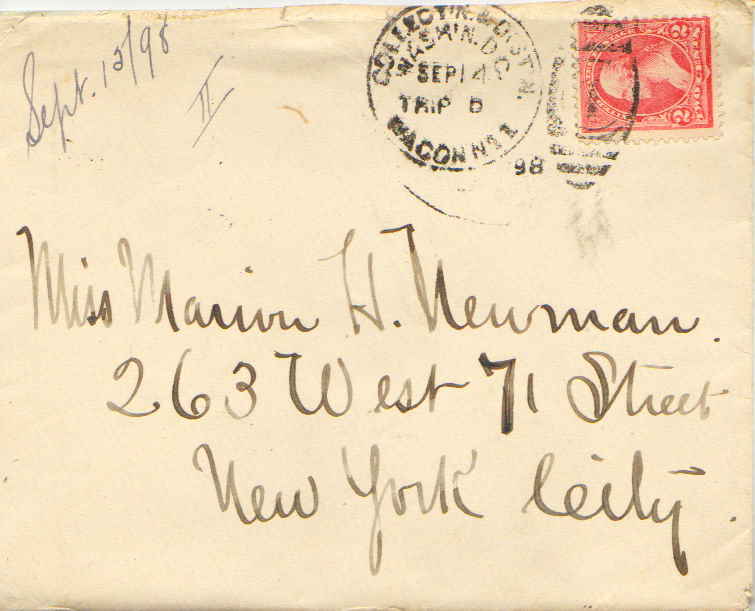 Sept. 13/98
II
COLLECT'N. & DIST'N.
WASH'N. D.C.
SEP 14
TRIP
WAGON No 1
98
2 2
Miss Marion H. Newman.
263 West 71 Street
New York City.